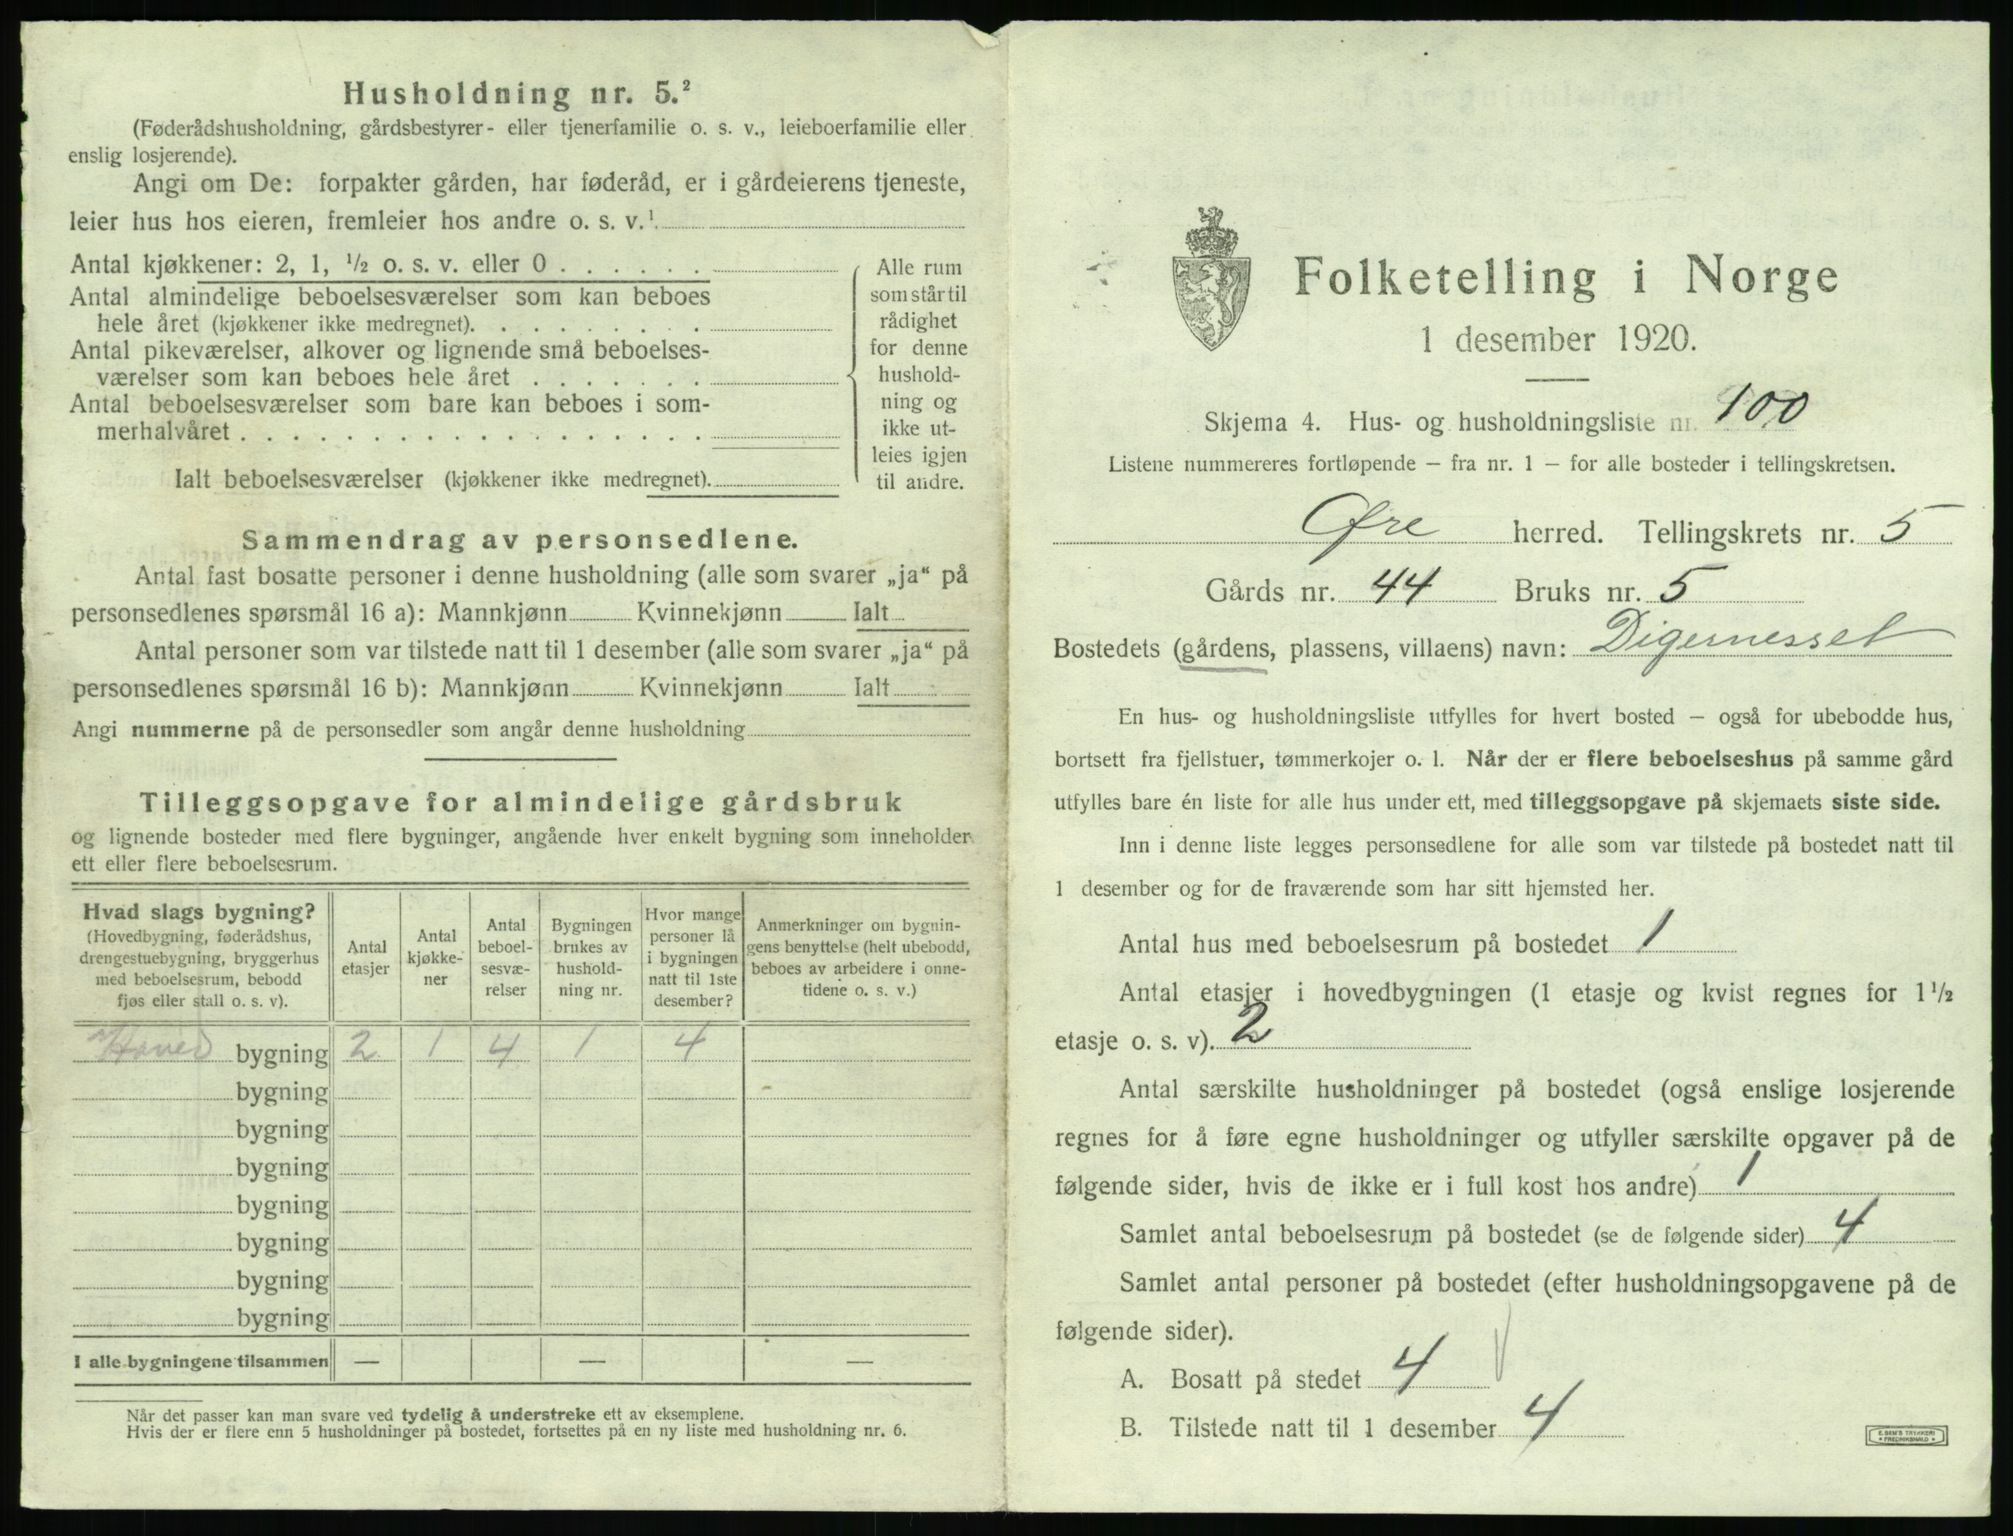 Husholdning nr. 5.²
(Føderådshusholdning, gårdsbestyrer- eller tjenerfamilie o. s. v., leieboerfamilie eller
enslig losjerende).
Angi om De: forpakter gården, har føderåd, er i gårdeierens tjeneste,
leier hus hos eieren, fremleier hos andre o. s. v.¹
Antal kjøkkener: 2, 1, ½ o. s. v. eller 0 . . . . . .
Antal almindelige beboelsesværelser som kan beboes
hele året (kjøkkener ikke medregnet). . . . . . . . .
Antal pikeværelser, alkover og lignende små beboelses-
værelser som kan beboes hele året . . . . . . .
Antal beboelsesværelser som bare kan beboes i som-
merhalvåret . . . . . . . . . . . . . . . . . .
Ialt beboelsesværelser (kjøkkener ikke medregnet).
Alle rum
som står til
rådighet
for denne
hushold-
ning og
ikke ut-
leies igjen
til andre.
Sammendrag av personsedlene.
Antal fast bosatte personer i denne husholdning (alle som svarer „ja“ på
personsedlenes spørsmål 16 a): Mannkjønn Kvinnekjønn Ialt
Antal personer som var tilstede natt til 1 desember (alle som svarer „ja“ på
personsedlenes spørsmål 16 b): Mannkjønn Kvinnekjønn Ialt
Angi nummerne på de personsedler som angår denne husholdning
Tilleggsopgave for almindelige gårdsbruk
og lignende bosteder med flere bygninger, angående hver enkelt bygning som inneholder
ett eller flere beboelsesrum.
Hvad slags bygning?
(Hovedbygning, føderådshus,
drengestuebygning, bryggerhus
med beboelsesrum, bebodd
fjøs eller stall o. s. v).
Antal
etasjer
Antal
kjøkke-
ner
Antal
beboel-
sesvæ-
relser
Bygningen
brukes av
hushold-
ning nr.
Hvor mange
personer lå
i bygningen
natt til 1ste
desember?
Anmerkninger om bygnin-
gens benyttelse (helt ubebodd,
beboes av arbeidere i onne-
tidene o. s. v.)
Hoved bygning 2 1 4 1 4
bygning
bygning
bygning
bygning
bygning
bygning
bygning
I alle bygningene tilsammen — — —
Når det passer kan man svare ved tydelig å understreke ett av eksemplene.
Hvis der er flere enn 5 husholdninger på bostedet, fortsettes på en ny liste med husholdning nr. 6.
Folketelling i Norge
1 desember 1920.
Skjema 4. Hus- og husholdningsliste nr. 100
Listene nummereres fortløpende – fra nr. 1 – for alle bosteder i tellingskretsen.
Øre herred. Tellingskrets nr. 5
Gårds nr. 44 Bruks nr. 5
Bostedets (gårdens, plassens, villaens) navn: Digernesset
En hus- og husholdningsliste utfylles for hvert bosted – også for ubebodde hus,
bortsett fra fjellstuer, tømmerkojer o. l. Når der er flere beboelseshus på samme gård
utfylles bare én liste for alle hus under ett, med tilleggsopgave på skjemaets siste side.
Inn i denne liste legges personsedlene for alle som var tilstede på bostedet natt til
1 desember og for de fraværende som har sitt hjemsted her.
Antal hus med beboelsesrum på bostedet 1
Antal etasjer i hovedbygningen (1 etasje og kvist regnes for 1½
etasje o. s. v). 2
Antal særskilte husholdninger på bostedet (også enslige losjerende
regnes for å føre egne husholdninger og utfyller særskilte opgaver på de
følgende sider, hvis de ikke er i full kost hos andre) 1
Samlet antal beboelsesrum på bostedet (se de følgende sider) 4
Samlet antal personer på bostedet (efter husholdningsopgavene på de
følgende sider).
A. Bosatt på stedet 4
B. Tilstede natt til 1 desember 4
E. SEM'S TRYKKERI
FREDRIKSHALD